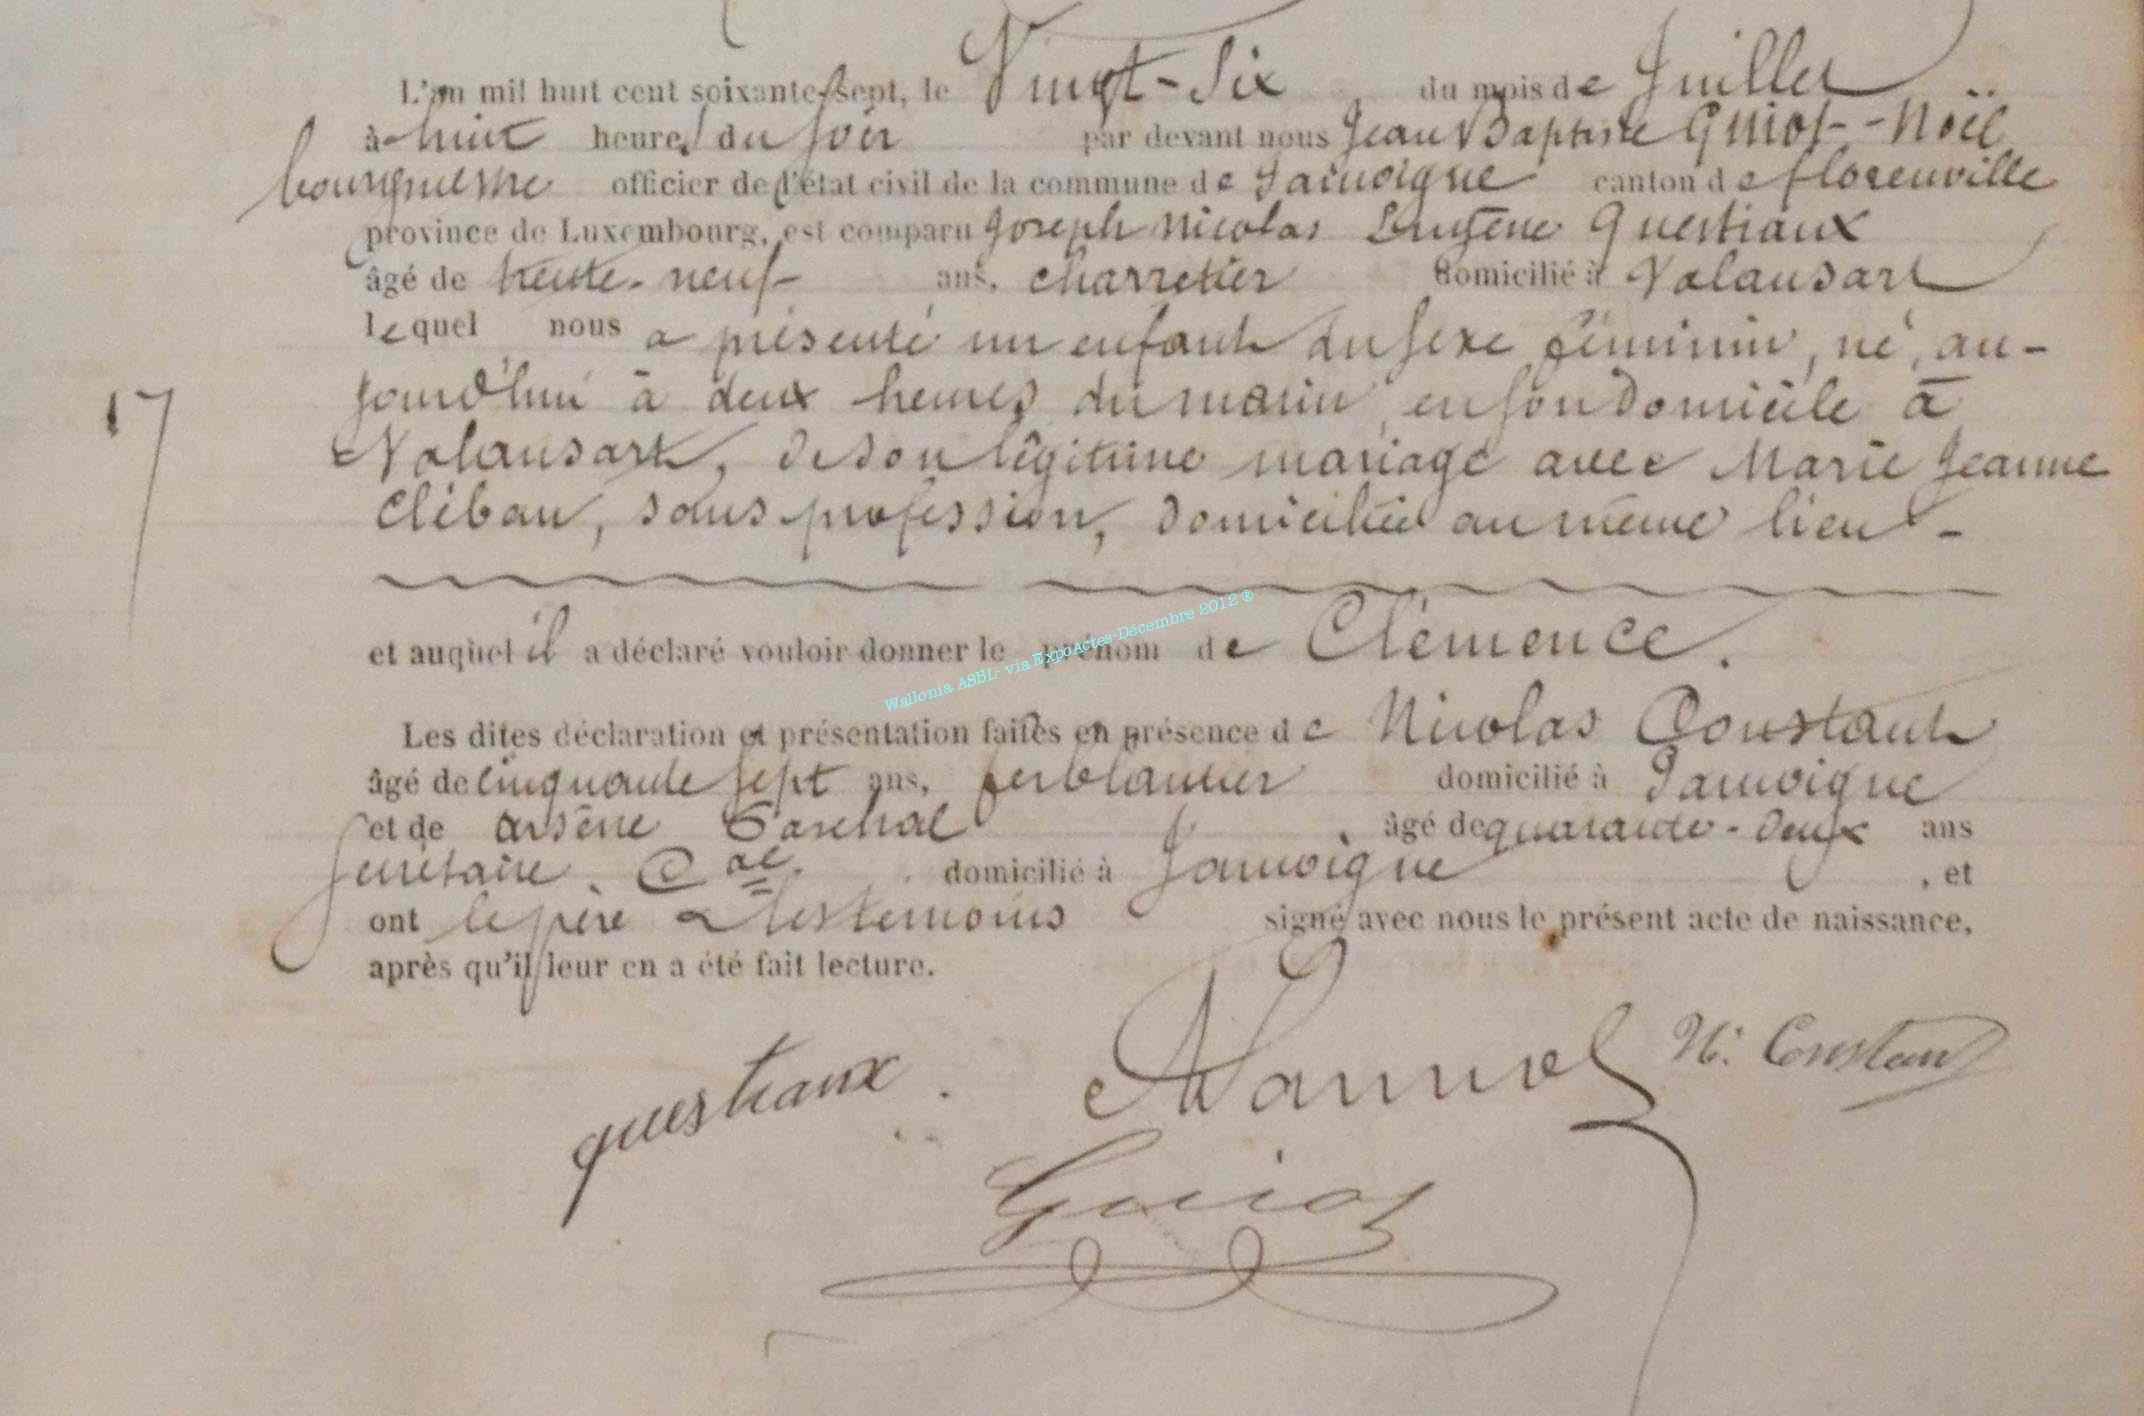 L'an mil huit cent soixante-sept, le Vingt-Six du mois de Juillet
à huit heures du soir par devant nous Jean Baptiste Guiot-Noël
bourgmestre officier de l'état civil de la commune de Jamoigne canton de florenville
province de Luxembourg, est comparu Joseph Nicolas Eugène Questiaux
âgé de trente-neuf ans, charretier domicilié à Valansart
lequel nous a présenté un enfant du sexe féminin, né au-
jourd'hui à deux heures du matin, en son domicile à
Valansart, de son légitime mariage avec Marie Jeanne
Cléban, sans profession, domiciliée au même lieu -
17
et auquel il a déclaré vouloir donner le prénom de Clémence.
Wallonia ASBL: via ExpoActes-Décembre 2012 ®
Les dites déclaration et présentation faites en présence de Nicolas Constant
âgé de cinquante sept ans, ferblantier domicilié à Jamoigne
et de Arsène Paschal , âgé de quarante-deux ans
secrétaire Cal domicilié à Jamoigne , et
ont le père & les témoins signé avec nous le présent acte de naissance,
après qu'il leur en a été fait lecture.
questiaux. N: Constant
Guiot